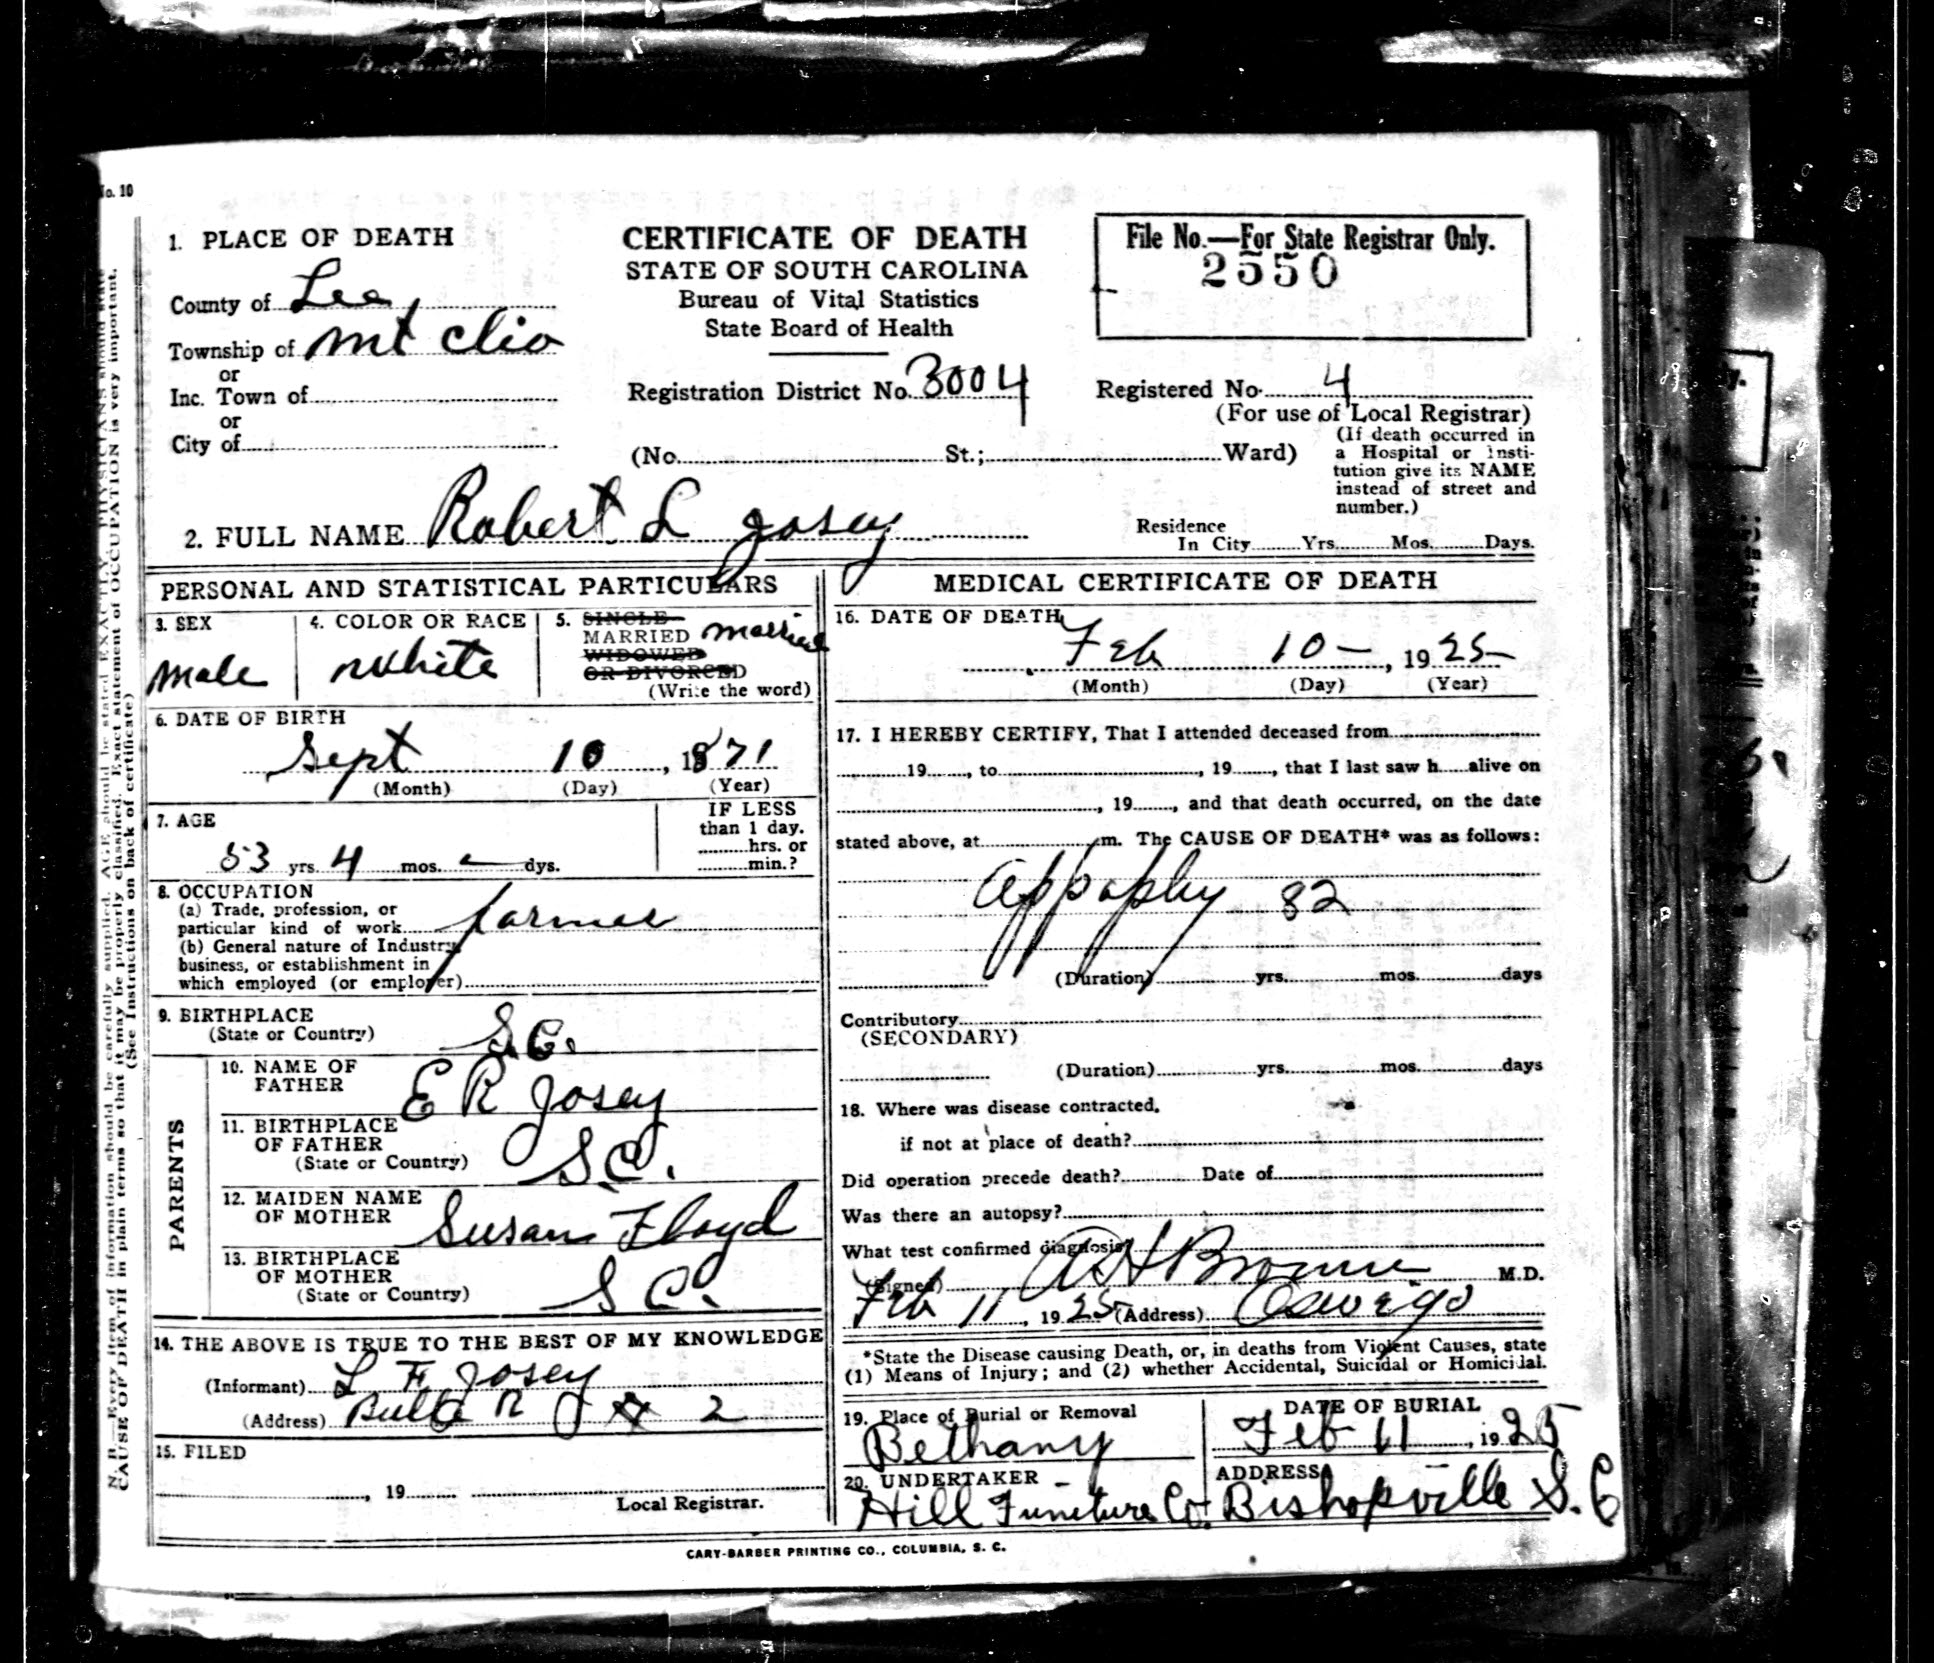 No. 10
1. PLACE OF DEATH
County of Lee,
Township of Mt Clio
or
Inc. Town of
or
City of
CERTIFICATE OF DEATH
STATE OF SOUTH CAROLINA
Bureau of Vital Statistics
State Board of Health
Registration District No. 3004
(No. St.; Ward)
File No.—For State Registrar Only.
2550
Registered No. 4
(For use of Local Registrar)
(If death occurred in
a Hospital or Insti-
tution give its NAME
instead of street and
number.)
2. FULL NAME Robert L Josey
Residence
In City Yrs. Mos. Days.
PERSONAL AND STATISTICAL PARTICULARS
3. SEX
male
4. COLOR OR RACE
white
5. SINGLE
MARRIED married
WIDOWED
OR DIVORCED
(Write the word)
6. DATE OF BIRTH
Sept 10, 1871
(Month) (Day) (Year)
7. AGE
53 yrs. 4 mos. — dys.
IF LESS
than 1 day.
hrs. or
min.?
8. OCCUPATION
(a) Trade, profession, or
particular kind of work farmer
(b) General nature of Industry,
business, or establishment in
which employed (or employer)
9. BIRTHPLACE
(State or Country) S.C.
PARENTS
10. NAME OF
FATHER E R Josey
11. BIRTHPLACE
OF FATHER
(State or Country) S.C.
12. MAIDEN NAME
OF MOTHER Susan Floyd
13. BIRTHPLACE
OF MOTHER
(State or Country) S C.
14. THE ABOVE IS TRUE TO THE BEST OF MY KNOWLEDGE
(Informant) L F Josey
(Address) 2
15. FILED
, 19
Local Registrar.
MEDICAL CERTIFICATE OF DEATH
16. DATE OF DEATH
Feb 10—, 1925—
(Month) (Day) (Year)
17. I HEREBY CERTIFY, That I attended deceased from
19, to, 19, that I last saw h alive on
, 19, and that death occurred, on the date
stated above, at m. The CAUSE OF DEATH* was as follows:
appoplxy 82
(Duration) yrs. mos. days
Contributory
(SECONDARY)
(Duration) yrs. mos. days
18. Where was disease contracted,
if not at place of death?
Did operation precede death? Date of
Was there an autopsy?
What test confirmed diagnosis?
(Signed) M.D.
Feb 11, 1925 (Address) Oswego
*State the Disease causing Death, or, in deaths from Violent Causes, state
(1) Means of Injury; and (2) whether Accidental, Suicidal or Homicidal.
19. Place of Burial or Removal
Bethany
DATE OF BURIAL
Feb 11, 1925
20. UNDERTAKER
Hill Funeture Co.
ADDRESS
Bishopville S. C
CARY-BARBER PRINTING CO., COLUMBIA, S. C.
N. B.—Every item of information should be carefully supplied. AGE should be stated EXACTLY. PHYSICIANS should state
CAUSE OF DEATH in plain terms so that it may be properly classified. Exact statement of OCCUPATION is very important.
(See Instructions on back of certificate)